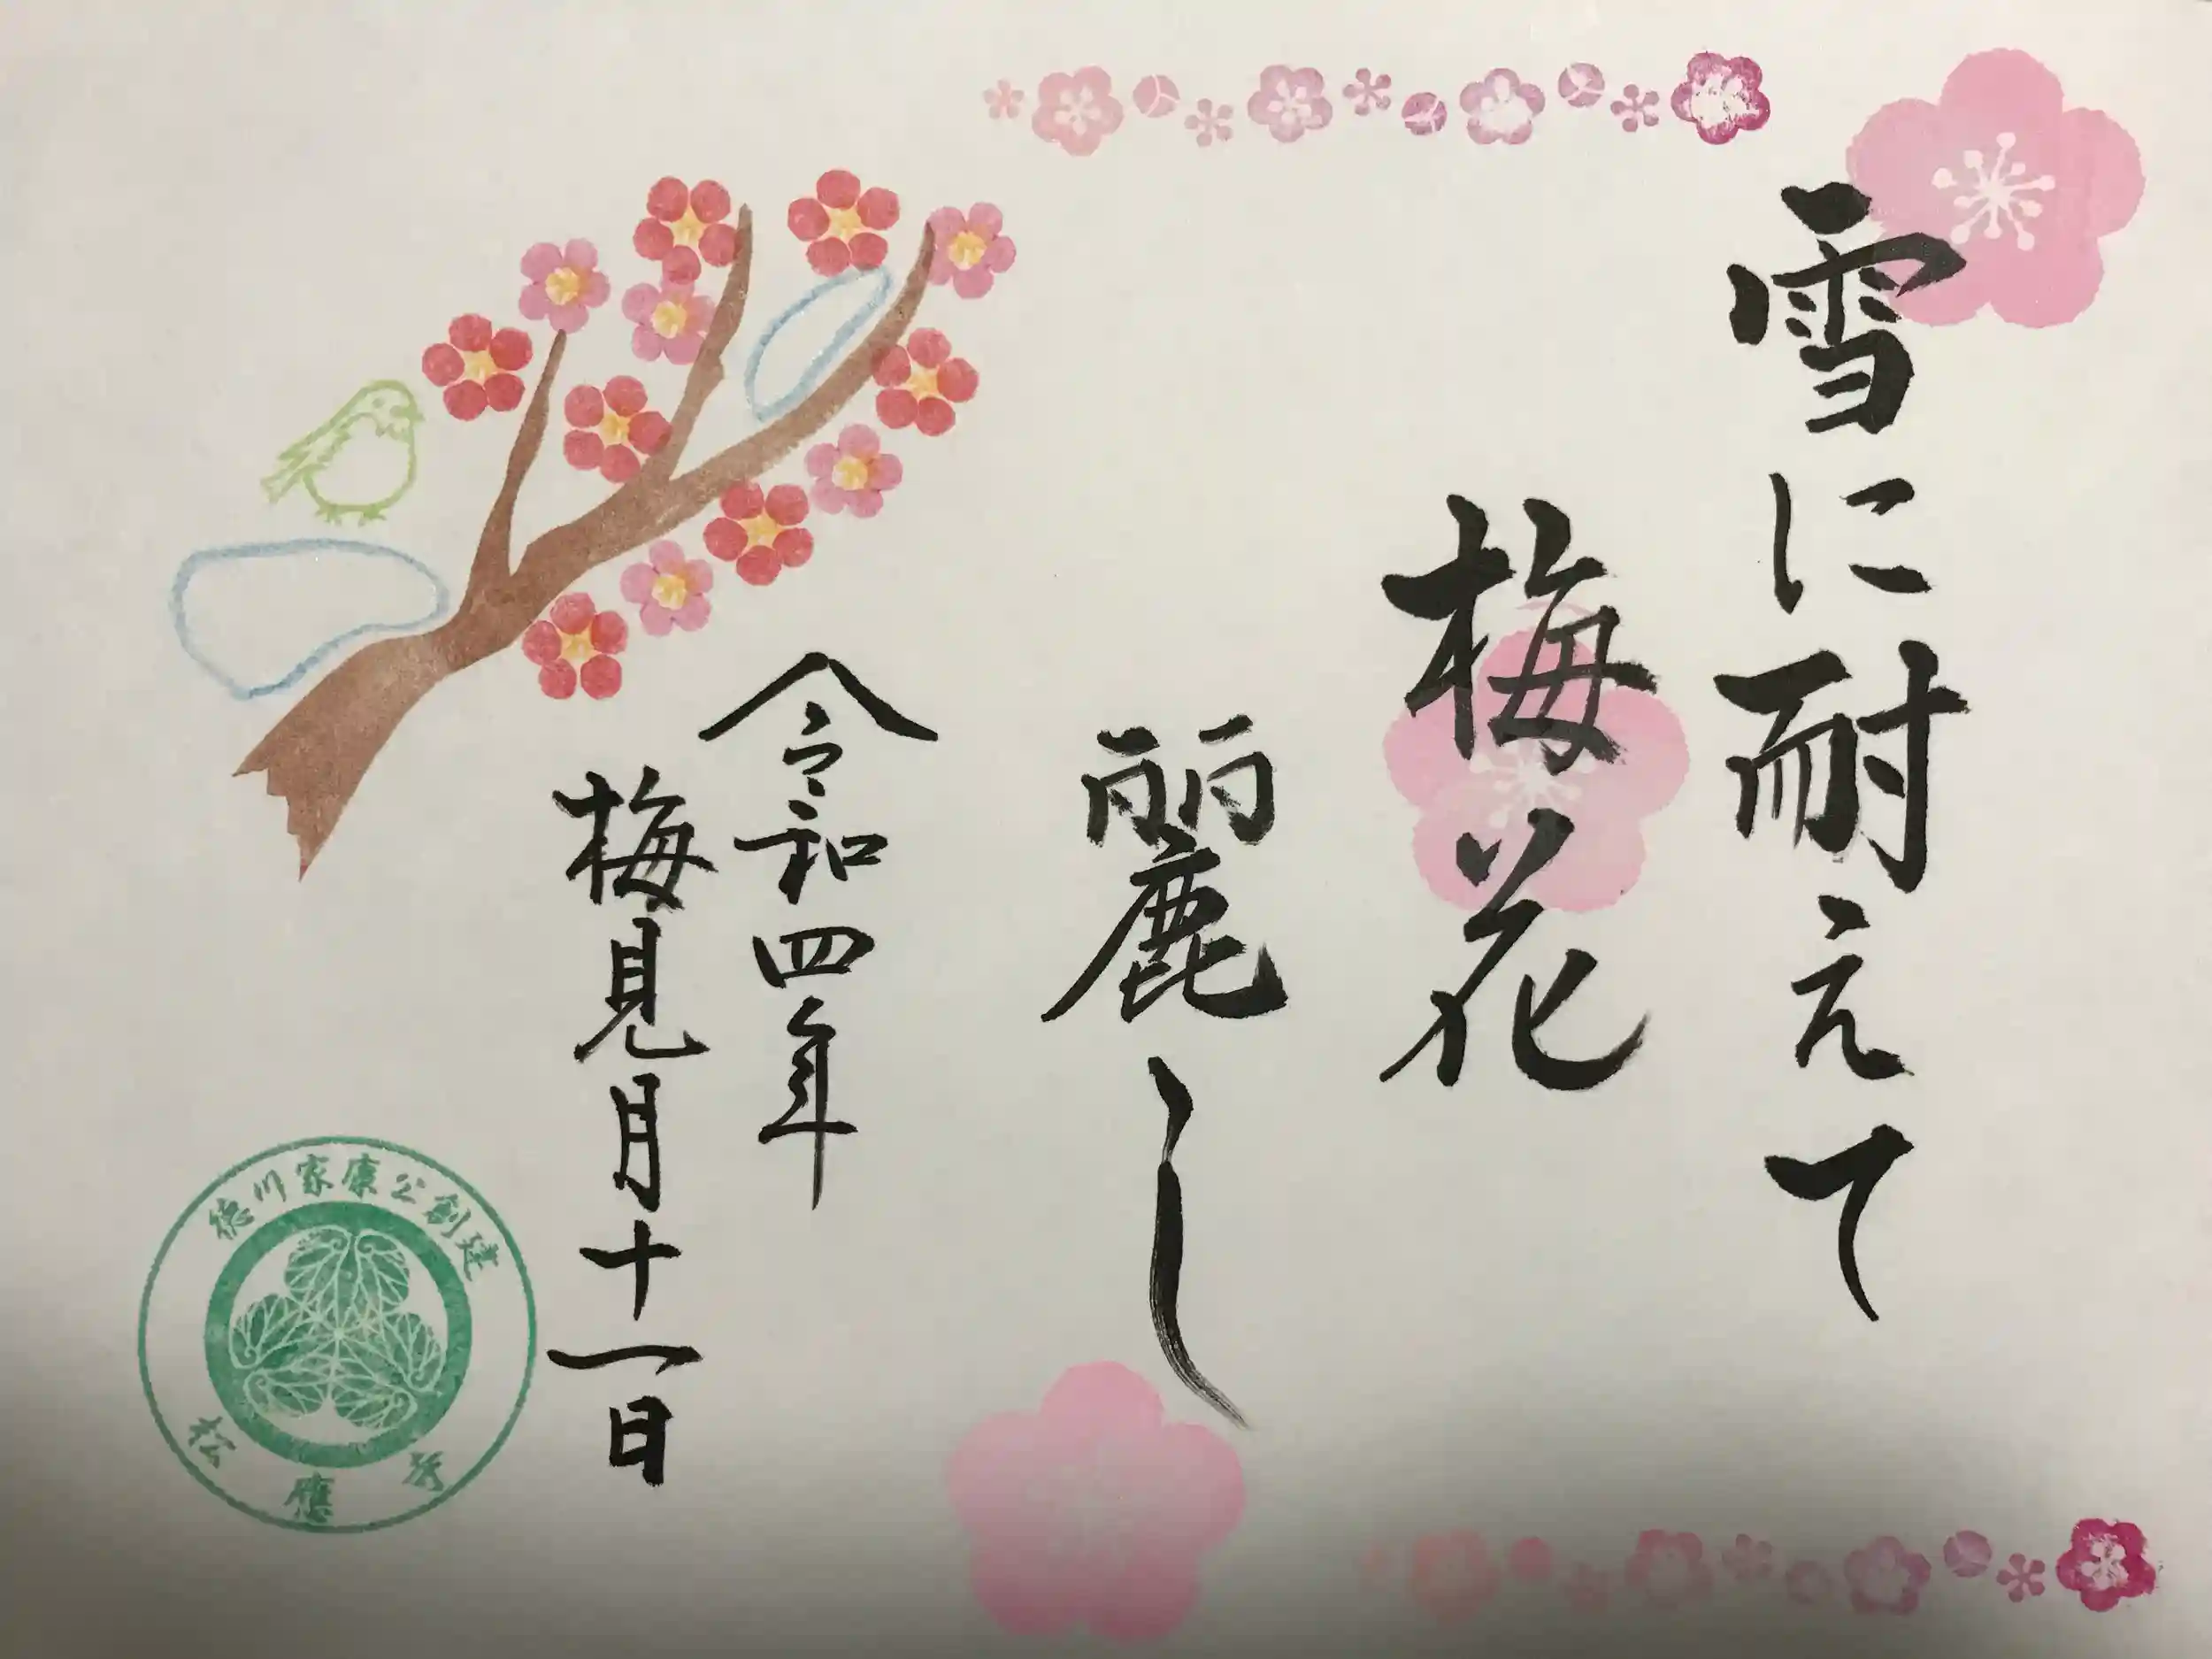 雪に耐えて
梅花
麗し
令和四年
梅見月十一日
徳川家康公創建
松應寺